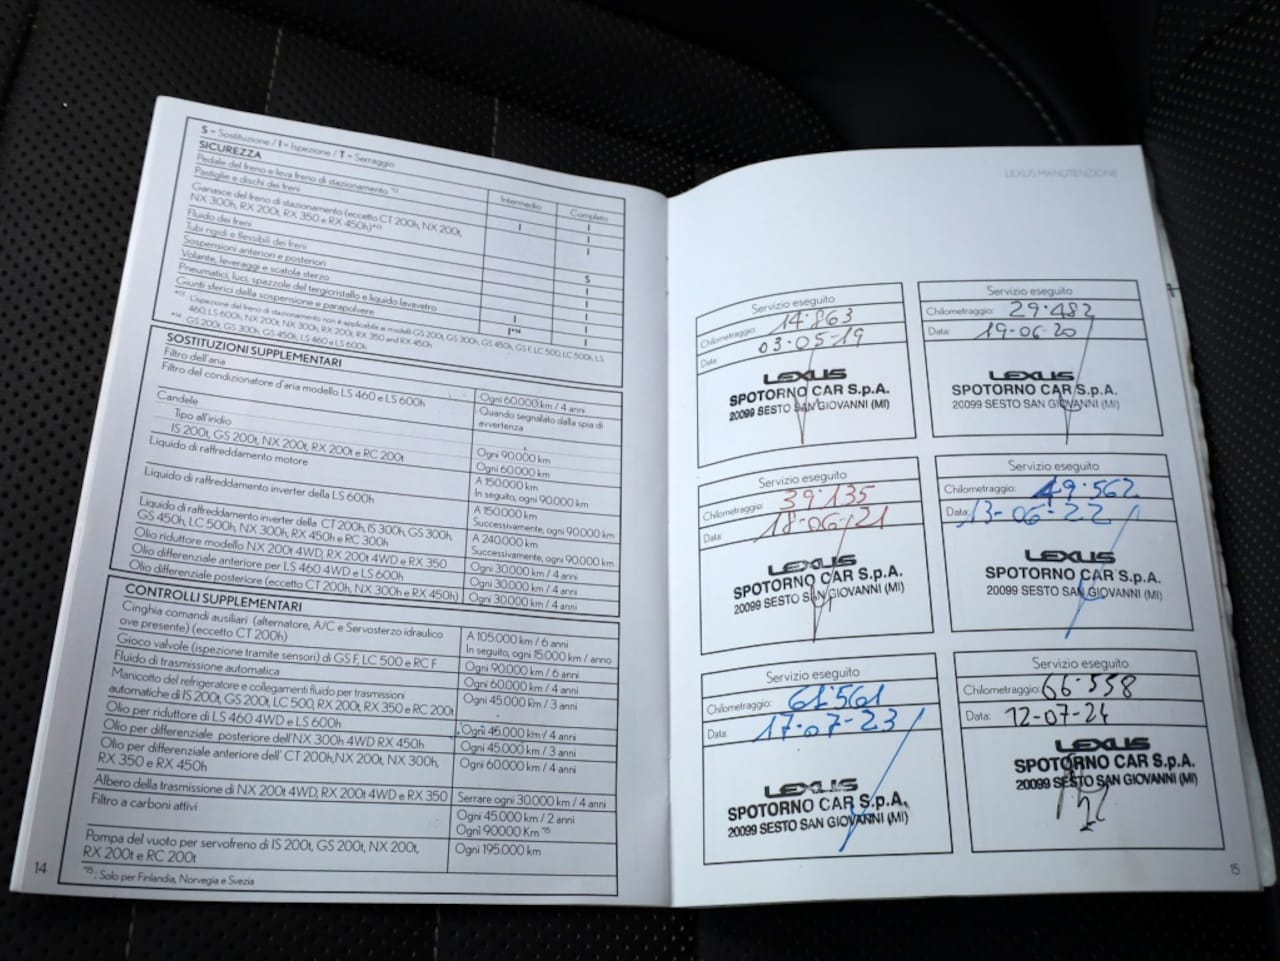 S = Sostituzione / I = Ispezione / T = Serraggio
SICUREZZA
Intermedio Completo
Pedale del freno e leva freno di stazionamento *13 I I
Pastiglie e dischi dei freni I
Ganasce del freno di stazionamento (eccetto CT 200h, NX 200t,
NX 300h, RX 200t, RX 350 e RX 450h)*13 I
Fluido dei freni S
Tubi rigidi e flessibili dei freni I
Sospensioni anteriori e posteriori I
Volante, leveraggi e scatola sterzo I
Pneumatici, luci, spazzole del tergicristallo e liquido lavavetro I I
Giunti sferici della sospensione e parapolvere I*14 I
*13 : L'ispezione del freno di stazionamento non è applicabile ai modelli GS 200t, GS 300h, GS 450h, GS F, LC 500, LC 500h, LS
460, LS 600h, NX 200t, NX 300h, RX 200t, RX 350 and RX 450h
*14 : GS 200t, GS 300h, GS 450h, LS 460 e LS 600h
SOSTITUZIONI SUPPLEMENTARI
Filtro dell'aria Ogni 60.000 km / 4 anni
Filtro del condizionatore d'aria modello LS 460 e LS 600h Quando segnalato dalla spia di
avvertenza
Candele
Tipo all'iridio Ogni 90.000 km
IS 200t, GS 200t, NX 200t, RX 200t e RC 200t Ogni 60.000 km
Liquido di raffreddamento motore A 150.000 km
In seguito, ogni 90.000 km
Liquido di raffreddamento inverter della LS 600h A 150.000 km
Successivamente, ogni 90.000 km
Liquido di raffreddamento inverter della CT 200h, IS 300h, GS 300h,
GS 450h, LC 500h, NX 300h, RX 450h e RC 300h A 240.000 km
Successivamente, ogni 90.000 km
Olio riduttore modello NX 200t 4WD, RX 200t 4WD e RX 350 Ogni 30.000 km / 4 anni
Olio differenziale anteriore per LS 460 4WD e LS 600h Ogni 30.000 km / 4 anni
Olio differenziale posteriore (eccetto CT 200h, NX 300h e RX 450h) Ogni 30.000 km / 4 anni
CONTROLLI SUPPLEMENTARI
Cinghia comandi ausiliari (alternatore, A/C e Servosterzo idraulico
ove presente) (eccetto CT 200h) A 105.000 km / 6 anni
In seguito, ogni 15.000 km / anno
Gioco valvole (ispezione tramite sensori) di GS F, LC 500 e RC F Ogni 90.000 km / 6 anni
Fluido di trasmissione automatica Ogni 60.000 km / 4 anni
Manicotto del refrigeratore e collegamenti fluido per trasmissioni
automatiche di IS 200t, GS 200t, LC 500, RX 200t, RX 350 e RC 200t Ogni 45.000 km / 3 anni
Olio per riduttore di LS 460 4WD e LS 600h Ogni 45.000 km / 4 anni
Olio per differenziale posteriore dell'NX 300h 4WD RX 450h Ogni 45.000 km / 3 anni
Olio per differenziale anteriore dell' CT 200h,NX 200t, NX 300h,
RX 350 e RX 450h Ogni 60.000 km / 4 anni
Albero della trasmissione di NX 200t 4WD, RX 200t 4WD e RX 350 Serrare ogni 30.000 km / 4 anni
Filtro a carboni attivi Ogni 45.000 Km / 2 anni
Ogni 90000 Km *15
Pompa del vuoto per servofreno di IS 200t, GS 200t, NX 200t,
RX 200t e RC 200t Ogni 195.000 km
*15 : Solo per Finlandia, Norvegia e Svezia
14
LEXUS MANUTENZIONE
Servizio eseguito
Chilometraggio: 14.863
Data: 03-05-19
LEXUS
SPOTORNO CAR S.p.A.
20099 SESTO SAN GIOVANNI (MI)
Servizio eseguito
Chilometraggio: 29.482
Data: 19-06-20
LEXUS
SPOTORNO CAR S.p.A.
20099 SESTO SAN GIOVANNI (MI)
Servizio eseguito
Chilometraggio: 39.135
Data: 18-06-21
LEXUS
SPOTORNO CAR S.p.A.
20099 SESTO SAN GIOVANNI (MI)
Servizio eseguito
Chilometraggio: 49.562
Data: 13-06-22
LEXUS
SPOTORNO CAR S.p.A.
20099 SESTO SAN GIOVANNI (MI)
Servizio eseguito
Chilometraggio: 61.561
Data: 17-07-23
LEXUS
SPOTORNO CAR S.p.A.
20099 SESTO SAN GIOVANNI (MI)
Servizio eseguito
Chilometraggio: 66.558
Data: 12-07-24
LEXUS
SPOTORNO CAR S.p.A.
20099 SESTO SAN GIOVANNI (MI)
15